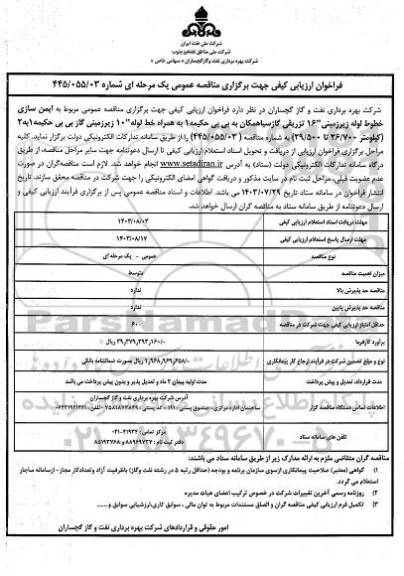 شرکت ملی نفت ایران
شرکت ملی مناطق نفتخیز جنوب
شرکت بهره برداری نفت و گاز گچساران ( سهامی خاص )
فراخوان ارزیابی کیفی جهت برگزاری مناقصه عمومی یک مرحله ای شماره ۴۴۵/۰۵۵/۰۳
شرکت بهره برداری نفت و گاز گچساران در نظر دارد فراخوان ارزیابی کیفی جهت برگزاری مناقصه عمومی مربوط به ایمن سازی
خطوط لوله زیرزمینی "۱۶ تزریقی گازسیاهمکان به بی بی حکیمه۱ به همراه خط لوله "۱۰ زیرزمینی گاز بی بی حکیمه۱به۲
(کیلومتر ۲۶/۷۰۰ تا ۲۹/۵۰۰) به شماره مناقصه ( ۴۴۵/۰۵۵/۰۳) را از طریق سامانه تدارکات الکترونیکی دولت برگزار نماید. کلیه
مراحل برگزاری فراخوان ارزیابی از دریافت و تحویل اسناد استعلام ارزیابی کیفی تا ارسال دعوتنامه جهت سایر مراحل مناقصه، از طریق
درگاه سامانه تدارکات الکترونیکی دولت (ستاد) به آدرس www.setadiran.ir انجام خواهد شد. لازم است مناقصه‌گران در صورت
عدم عضویت قبلی، مراحل ثبت نام در سایت مذکور و دریافت گواهی امضای الکترونیکی را جهت شرکت در مناقصه محقق سازند. تاریخ
انتشار فراخوان در سامانه ستاد تاریخ ۱۴۰۳/۰۷/۲۹ می باشد. اطلاعات و اسناد مناقصه عمومی پس از برگزاری فرآیند ارزیابی کیفی و
ارسال دعوتنامه از طریق سامانه ستاد به مناقصه گران ارسال خواهد شد.
مهلت دریافت اسناد استعلام ارزیابی کیفی ۱۴۰۳/۰۸/۰۳
مهلت ارسال پاسخ استعلام ارزیابی کیفی ۱۴۰۳/۰۸/۱۷
نوع مناقصه عمومی - یک مرحله ای
میزان اهمیت مناقصه متوسط
مناقصه حد پذیرش بالا ندارد
مناقصه حد پذیرش پایین ندارد
حداقل امتیاز ارزیابی کیفی جهت شرکت در مناقصه ۶۰
برآورد کارفرما
نوع و مبلغ تضمین شرکت در فرآیند ارجاع کار پیمانکاری ریال بصورت ضمانتنامه بانکی
مدت قرارداد، تعدیل و پیش پرداخت مدت اولیه پیمان ۲ ماه و تعدیل پذیر و بدون پیش پرداخت می باشد
اطلاعات تماس دستگاه مناقصه گزار آدرس شرکت بهره برداری نفت و گاز گچساران
ساختمان اداره مرکزی- صندوق پستی: ۱۹۱ - کد پستی:
تلفن های سامانه ستاد مرکز تماس: ۰۲۱-۴۱۹۳۴
دفتر ثبت نام: ۸۸۹۶۹۷۳۷ و ۸۵۱۹۳۷۶۸
مناقصه گران متقاضی ملزم به ارائه مدارک زیر از طریق سامانه ستاد می باشند:
۱) گواهی (معتبر) صلاحیت پیمانکاری ازسوی سازمان برنامه و بودجه (حداقل رتبه ۵ در رشته نفت وگاز) باظرفیت آزاد وتعدادکار مجاز-ازسامانه ساجار
استعلام می گردد.
۲) روزنامه رسمی آخرین تغییرات شرکت در خصوص ترکیب اعضای هیات مدیره
۳) تکمیل فرم ارزیابی کیفی مناقصه گران و الصاق مستندات مربوط به توان مالی ، سوابق کاری،ارزشیابی سوابق و......
امور حقوقی و قراردادهای شرکت بهره برداری نفت و گاز گچساران